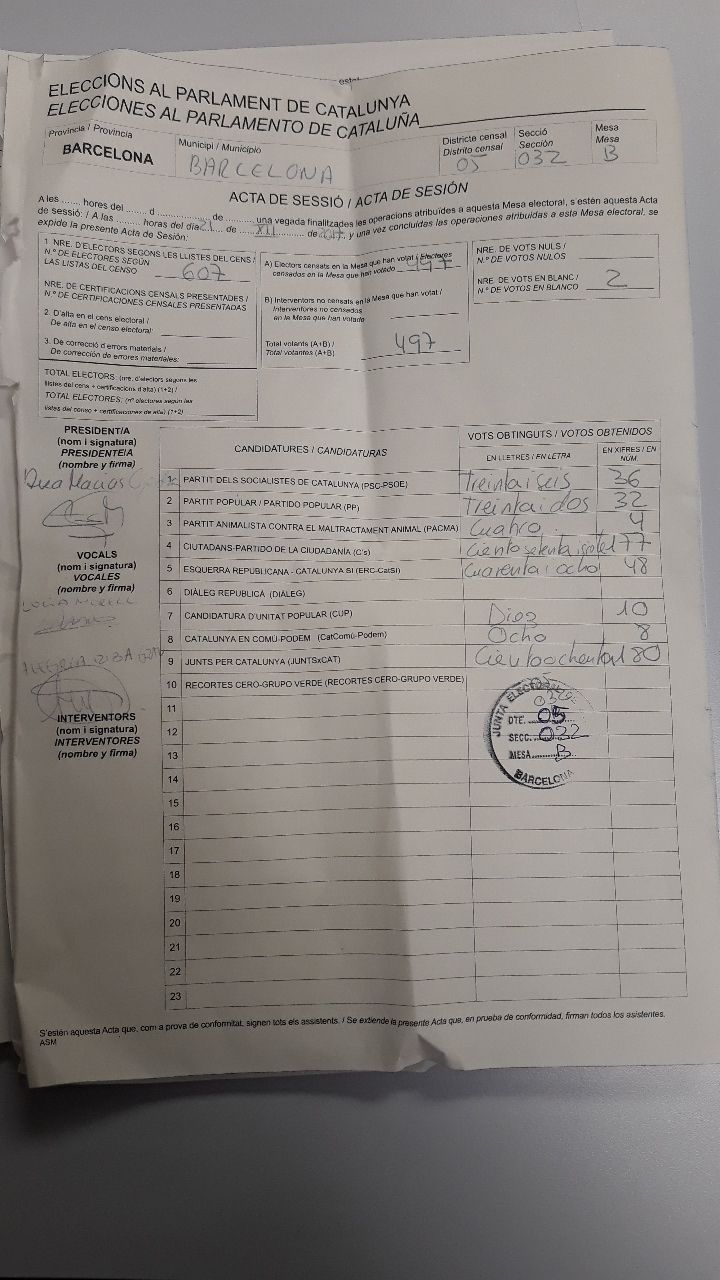 ELECCIONS AL PARLAMENT DE CATALUNYA
ELECCIONES AL PARLAMENTO DE CATALUÑA
Provincia / Provincia
BARCELONA
Municipi / Municipio
BARCELONA
Districte censal
Distrito censal
05
Secció
Sección
032
Mesa
Mesa
B
ACTA DE SESSIÓ / ACTA DE SESIÓN
A les ....... hores del ....... d ................ de .......... una vegada finalitzades les operacions atribuïdes a aquesta Mesa electoral, s'estén aquesta Acta
de sessió: / A las ........ horas del día 21 de XII de 2017, y una vez concluidas las operaciones atribuidas a esta Mesa electoral, se
expide la presente Acta de Sesión:
1 NRE. D'ELECTORS SEGONS LES LLISTES DEL CENS /
N.º DE ELECTORES SEGÚN
LAS LISTAS DEL CENSO 607
NRE. DE CERTIFICACIONS CENSALS PRESENTADES /
N.º DE CERTIFICACIONES CENSALES PRESENTADAS
2. D'alta en el cens electoral /
De alta en el censo electoral:
3. De correcció d'errors materials /
De corrección de errores materiales:
TOTAL ELECTORS: (nre. d'electors segons les
llistes del cens + certificacions d'alta) (1+2) /
TOTAL ELECTORES: (nº electores según las
listas del censo + certificaciones de alta) (1+2)
A) Electors censats en la Mesa que han votat / Electores
censados en la Mesa que han votado 497
B) Interventors no censats en la Mesa que han votat /
Interventores no censados
en la Mesa que han votado
Total votants (A+B) /
Total votantes (A+B) 497
NRE. DE VOTS NULS /
N.º DE VOTOS NULOS
NRE. DE VOTS EN BLANC /
N.º DE VOTOS EN BLANCO 2
PRESIDENT/A
(nom i signatura)
PRESIDENTE/A
(nombre y firma)
VOCALS
(nom i signatura)
VOCALES
(nombre y firma)
INTERVENTORS
(nom i signatura)
INTERVENTORES
(nombre y firma)
CANDIDATURES / CANDIDATURAS
VOTS OBTINGUTS / VOTOS OBTENIDOS
EN LLETRES / EN LETRA
EN XIFRES / EN NÚM.
1 PARTIT DELS SOCIALISTES DE CATALUNYA (PSC-PSOE) Treintaiseis 36
2 PARTIT POPULAR / PARTIDO POPULAR (PP) Treintaidos 32
3 PARTIT ANIMALISTA CONTRA EL MALTRACTAMENT ANIMAL (PACMA) Cuatro 4
4 CIUTADANS-PARTIDO DE LA CIUDADANÍA (C's) 177
5 ESQUERRA REPUBLICANA - CATALUNYA SÍ (ERC-CatSÍ) Cuarenta i ocho 48
6 DIÀLEG REPUBLICÀ (DIÀLEG)
7 CANDIDATURA D'UNITAT POPULAR (CUP) Diez 10
8 CATALUNYA EN COMÚ-PODEM (CatComú-Podem) Ocho 8
9 JUNTS PER CATALUNYA (JUNTSxCAT) Cientoochenta 180
10 RECORTES CERO-GRUPO VERDE (RECORTES CERO-GRUPO VERDE)
11
12
13
14
15
16
17
18
19
20
21
22
23
JUNTA ELECTORAL
DTE. 05
SECC. 032
MESA B
BARCELONA
S'estén aquesta Acta que, com a prova de conformitat, signen tots els assistents. / Se extiende la presente Acta que, en prueba de conformidad, firman todos los asistentes.
ASM